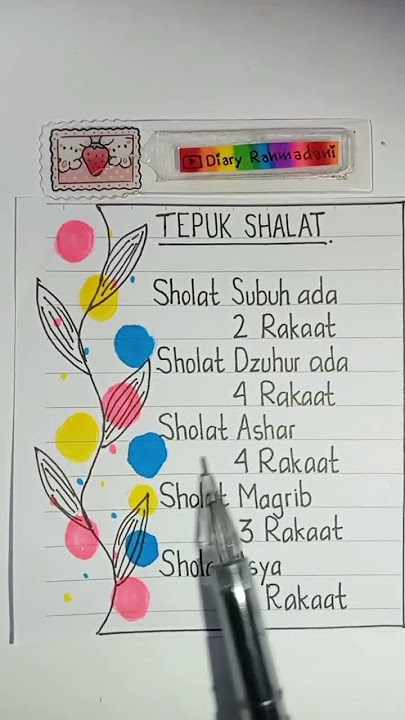 Diary Rahmadani
TEPUK SHALAT.
Sholat Subuh ada
2 Rakaat
Sholat Dzuhur ada
4 Rakaat
Sholat Ashar
4 Rakaat
Sholat Magrib
3 Rakaat
Rakaat